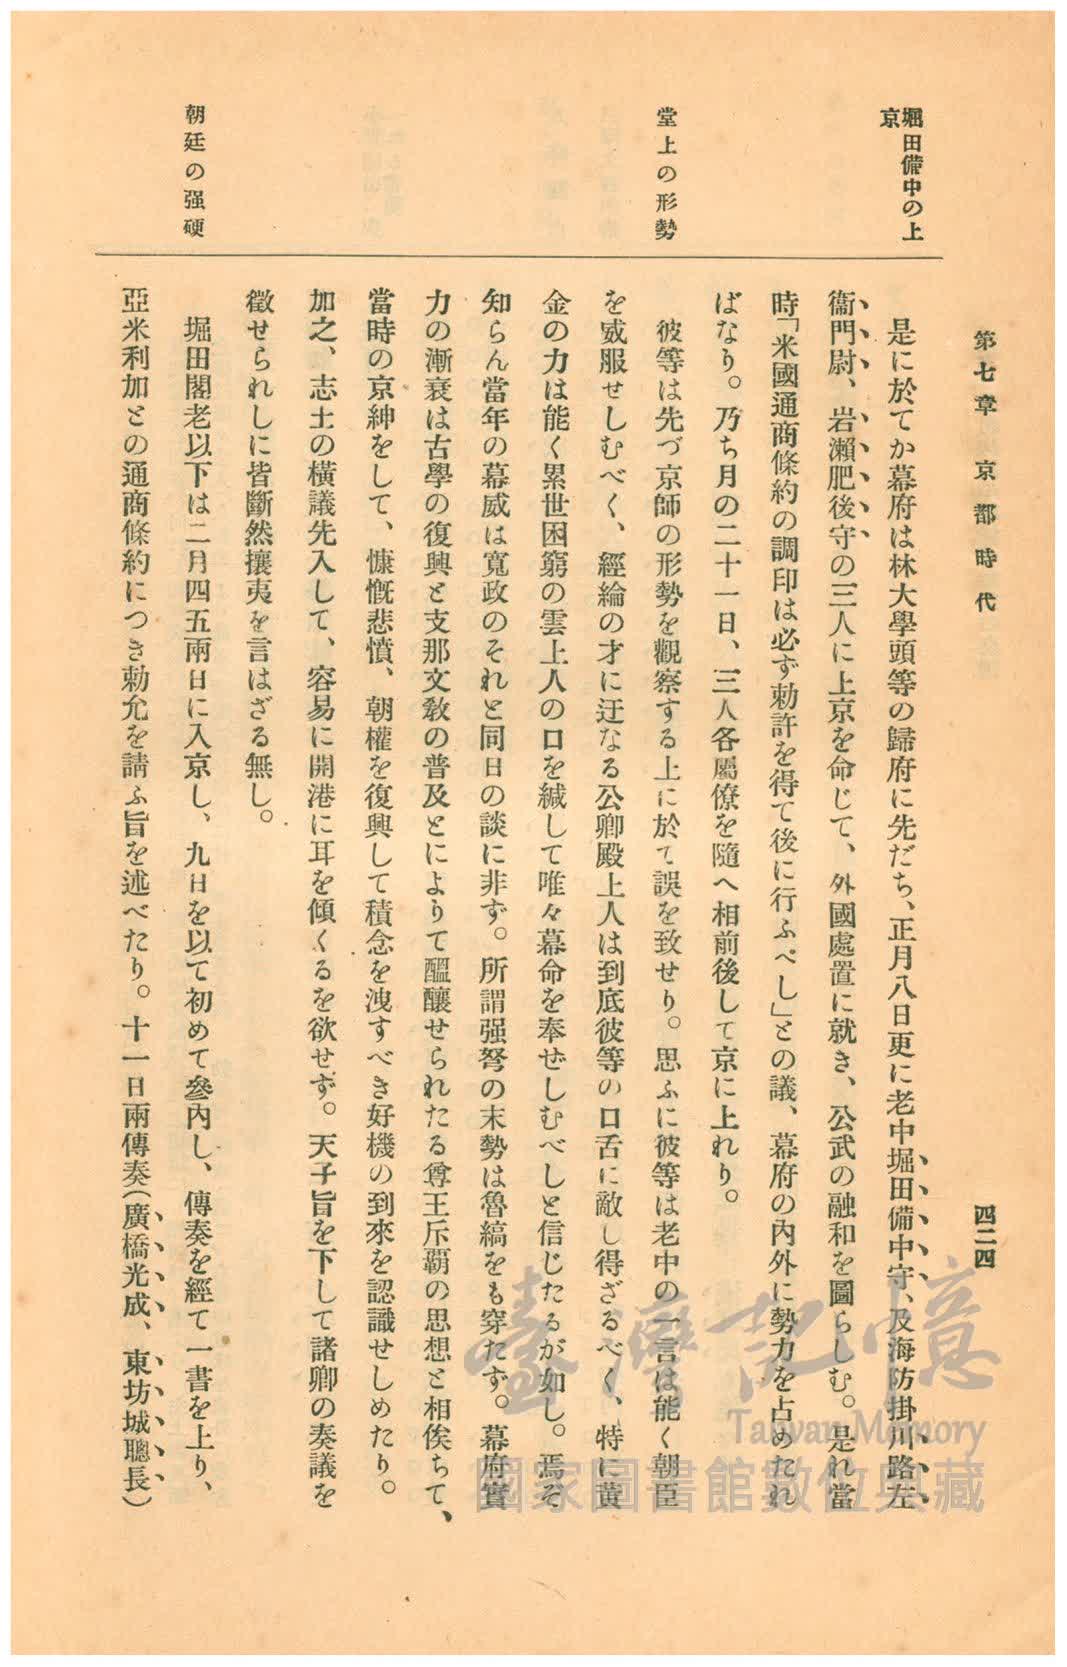 第七章 京都時代
四二四
堀田備中の上
京
堂上の形勢
朝廷の强硬
是に於てか幕府は林大學頭等の歸府に先だち、正月八日更に老中堀田備中守、及海防掛川路左
衞門尉、岩瀨肥後守の三人に上京を命じて、外國處置に就き、公武の融和を圖らしむ。是れ當
時「米國通商條約の調印は必ず勅許を得て後に行ふべし」との議、幕府の內外に勢力を占めたれ
ばなり。乃ち月の二十一日、三人各屬僚を隨へ相前後して京に上れり。
彼等は先づ京師の形勢を觀察する上に於て誤を致せり。思ふに彼等は老中の一言は能く朝臣
を威服せしむべく、經綸の才に迂なる公卿殿上人は到底彼等の口舌に敵し得ざるべく、特に黃
金の力は能く累世困窮の雲上人の口を緘して唯々幕命を奉ぜしむべしと信じたるが如し。焉ぞ
知らん當年の幕威は寬政のそれと同日の談に非ず。所謂强弩の末勢は魯縞をも穿たず。幕府實
力の漸衰は古學の復興と支那文敎の普及とによりて醞釀せられたる尊王斥覇の思想と相俟ちて、
當時の京紳をして、慷慨悲憤、朝權を復興して積念を洩すべき好機の到來を認識せしめたり。
加之、志士の橫議先入して、容易に開港に耳を傾くるを欲せず。天子旨を下して諸卿の奏議を
徵せられしに皆斷然攘夷を言はざる無し。
堀田閣老以下は二月四五兩日に入京し、九日を以て初めて參內し、傳奏を經て一書を上り、
亞米利加との通商條約につき勅允を請ふ旨を述べたり。十一日兩傳奏(廣橋光成、東坊城聰長)
臺灣記憶
Taiwan Memory
國家圖書館數位典藏